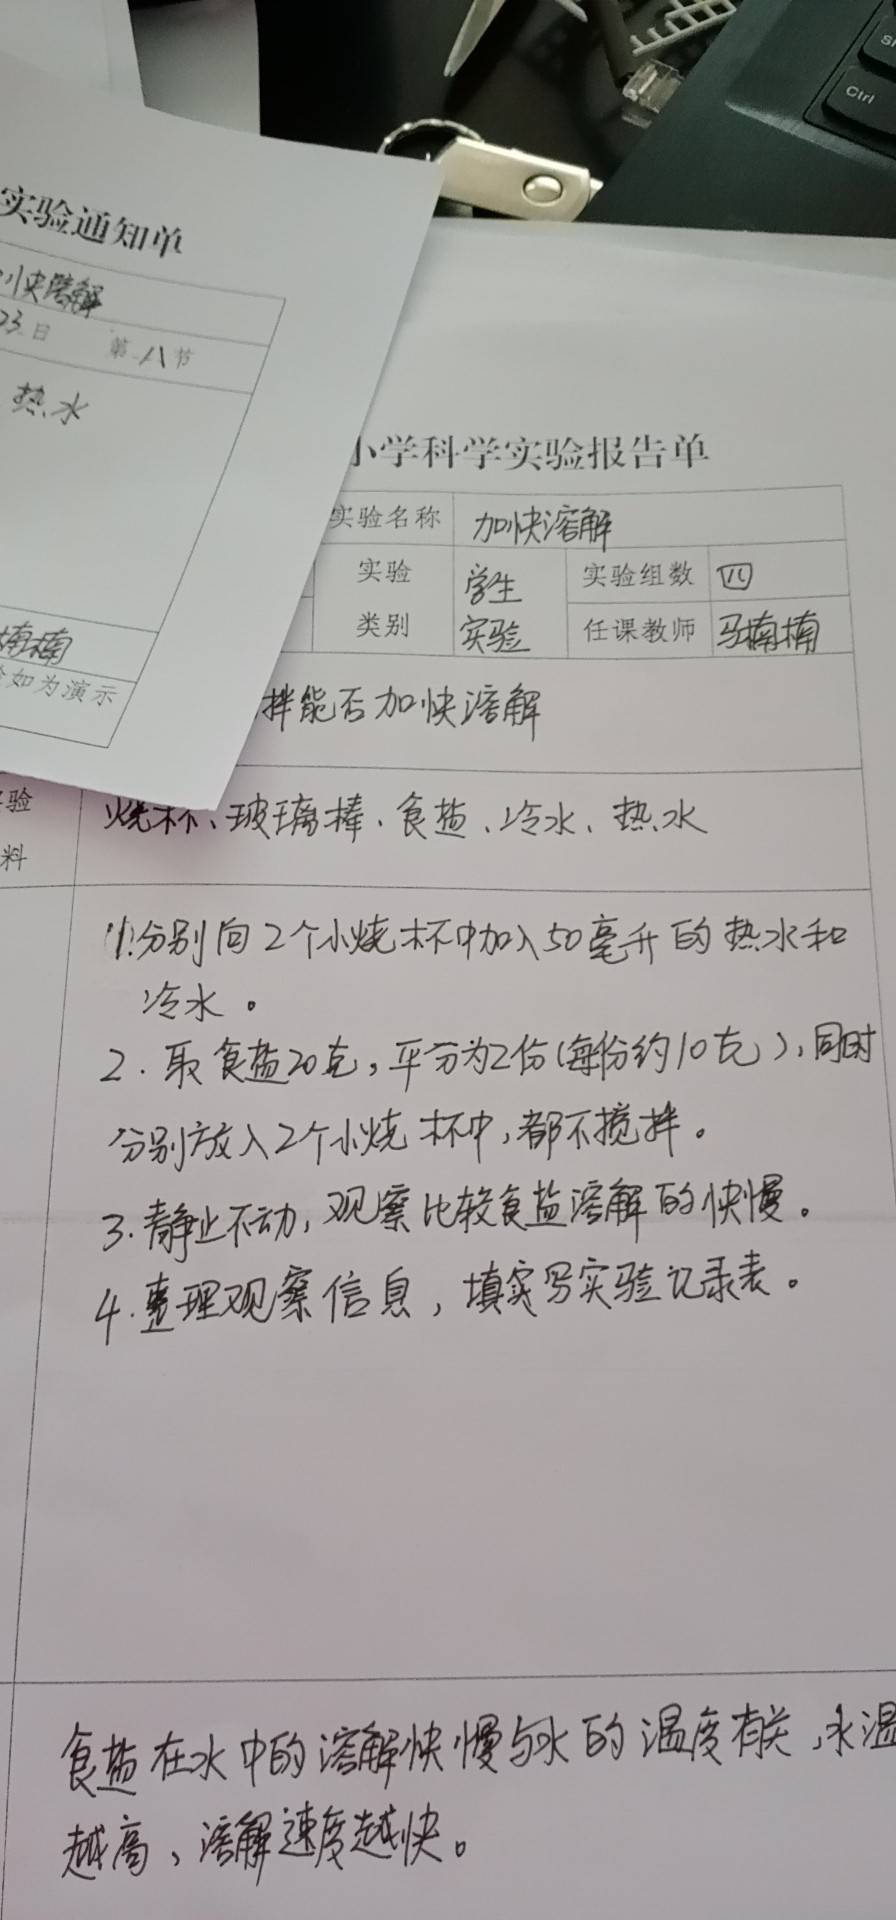 实验通知单
快溶解
23日 第八节
热水
楠楠
如为演示
小学科学实验报告单
实验名称 加快溶解
实验 学生 实验组数 四
类别 实验 任课教师 马楠楠
拌能否加快溶解
验 烧杯、玻璃棒、食盐、冷水、热水
料
1.分别向2个小烧杯中加入50毫升的热水和
冷水。
2.取食盐20克,平分为2份(每份约10克),同时
分别放入2个小烧杯中,都不搅拌。
3.静止不动,观察比较食盐溶解的快慢。
4.整理观察信息,填实写实验记录表。
食盐在水中的溶解快慢与水的温度有关,水温
越高,溶解速度越快。
Ctrl